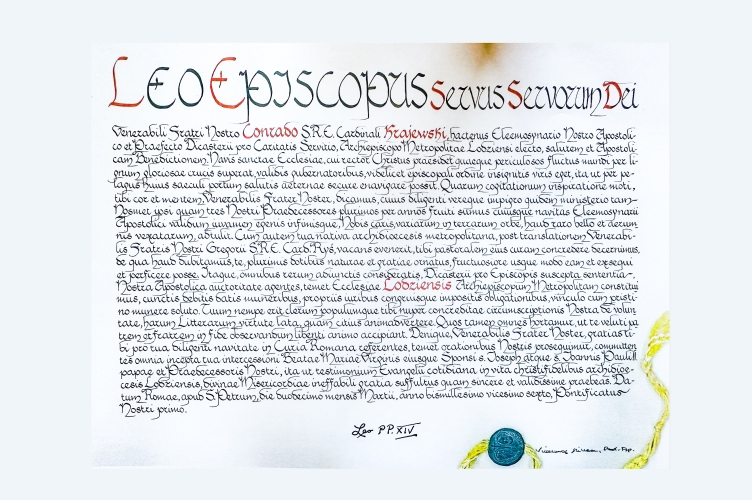 Leo Episcopus Servus Servorum Dei
Venerabili Fratri Nostro Conrado S.R.E. Cardinali Krajewski, hactenus Eleemosynario Nostro Apostoli-
co et Praefecto Dicasterii pro Caritatis Servitio, Archiepiscopo Metropolitae Lodziensi electo, salutem et Apostoli-
cam Benedictionem. Navis sanctae Ecclesiae, cui rector Christus praesidet quaeque periculosos fluctus mundi per li-
gnum gloriosae crucis superat, validis gubernatoribus, videlicet episcopali ordine insignitis viris eget, ita ut per pe-
lagus huius saeculi portum salutis aeternae secure enavigare possit. Quarum cogitationum inspiratione moti,
tibi cor et mentem, Venerabilis Frater Noster, dicamus, cuius diligenti vereque impigro quidem ministerio tam
Nosmet ipsi quam tres Nostri Praedecessores plurimos per annos fruiti sumus cuiusque navitas Eleemosynarii
Apostolici validum iuvamen egenis infimisque, Nobis caris, variarum in terrarum orbe, haud raro bello et aerum
nis vexatarum, attulit. Cum autem tua nativa archidioecesis metropolitana, post translationem Venerabi-
lis Fratris Nostri Gregorii S.R.E. Card. Ryś, vacans evenerit, tibi pastoralem eius curam concredere decernimus,
de qua haud dubitamus, te, plurimis dotibus naturae et gratiae ornatus, fructuosiore usque modo eam et exsequi
et perficere posse. Itaque, omnibus rerum adiunctis consideratis, Dicasterii pro Episcopis suscepta sententia,
Nostra Apostolica auctoritate agentes, temet Ecclesiae Lodziensis Archiepiscopum Metropolitam constitui
mus, cunctis debitis datis muneribus, propriis iuribus congruisque impositis obligationibus, vinculo cum pristi-
no munere soluto. Tuum nempe erit clerum populumque tibi nuper concreditae circumscriptionis Nostra de volun
tate, harum Litterarum virtute lata, quam citius animadvertere. Quos tamen omnes hortamur, ut te veluti pa
trem et fratrem in fide observandum libenti animo accipiant. Denique, Venerabilis Frater Noster, gratias ti-
bi pro tua diligenti navitate in Curia Romana referentes, temet orationibus Nostris prosequimur, committen
tes omnia incepta tua intercessioni Beatae Mariae Virginis eiusque Sponsi s. Joseph atque s. Ioannis Pauli II
papae et Praedecessoris Nostri, ita ut testimonium Evangelii cotidiana in vita christifidelibus archidioe-
cesis Lodziensis, divinae Misericordiae ineffabili gratia suffultus quam sincere et validissime praebeas. Da-
tum Romae, apud S. Petrum, die duodecimo mensis Martii, anno bismillesimo vicesimo sexto, Pontificatus
Nostri primo.
Leo PP. XIV